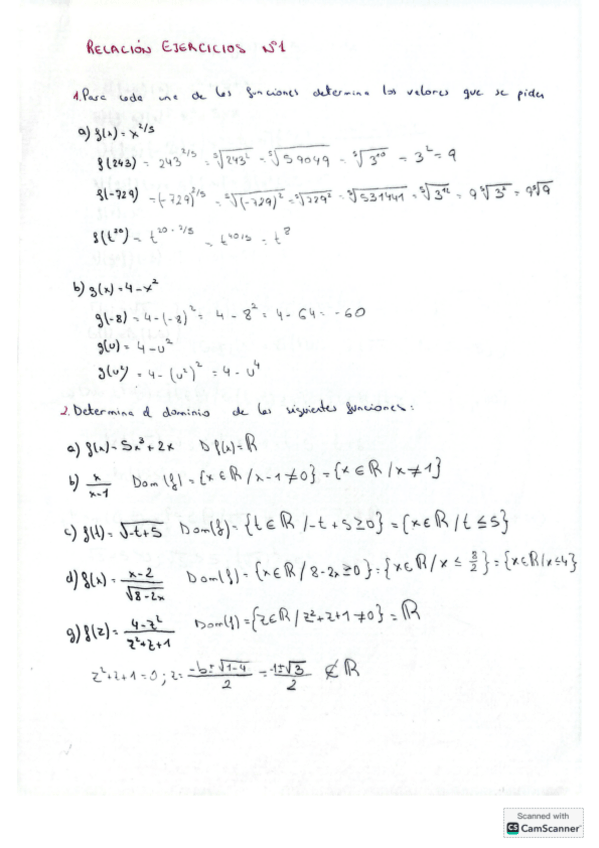 RELACIÓN EJERCICIOS Nº1
1. Para cada una de las funciones determina los valores que se piden
a) f(x) = x^{2/5}
f(243) = 243^{2/5} = ⁵√243² = ⁵√59049 = ⁵√3¹⁰ = 3² = 9
f(-729) = (-729)^{2/5} = ⁵√(-729)² = ⁵√729² = ⁵√531441 = ⁵√3¹² = 9 ⁵√3² = 9⁵√9
f(t²⁰) = t^{20·2/5} = t^{40/5} = t⁸
b) g(x) = 4-x²
g(-8) = 4-(-8)² = 4-8² = 4-64 = -60
g(u) = 4-u²
g(u²) = 4-(u²)² = 4-u⁴
2. Determina el dominio de las siguientes funciones:
a) f(x) = 5x³+2x D f(x) = ℝ
b) x/(x-1) Dom(f) = {x∈ℝ/x-1≠0} = {x∈ℝ/x≠1}
c) f(t) = √-t+5 Dom(f) = {t∈ℝ/-t+5≥0} = {x∈ℝ/t≤5}
d) f(x) = (x-2)/√8-2x Dom(f) = {x∈ℝ/8-2x≥0} = {x∈ℝ/x≤8/2} = {x∈ℝ/x≤4}
g) f(z) = (4-z²)/(z²+z+1) Dom(f) = {z∈ℝ/z²+z+1≠0} = ℝ
z²+z+1=0; z = (-b±√1-4)/2 = (-1±√3)/2 ∉ ℝ
Scanned with
CS CamScanner